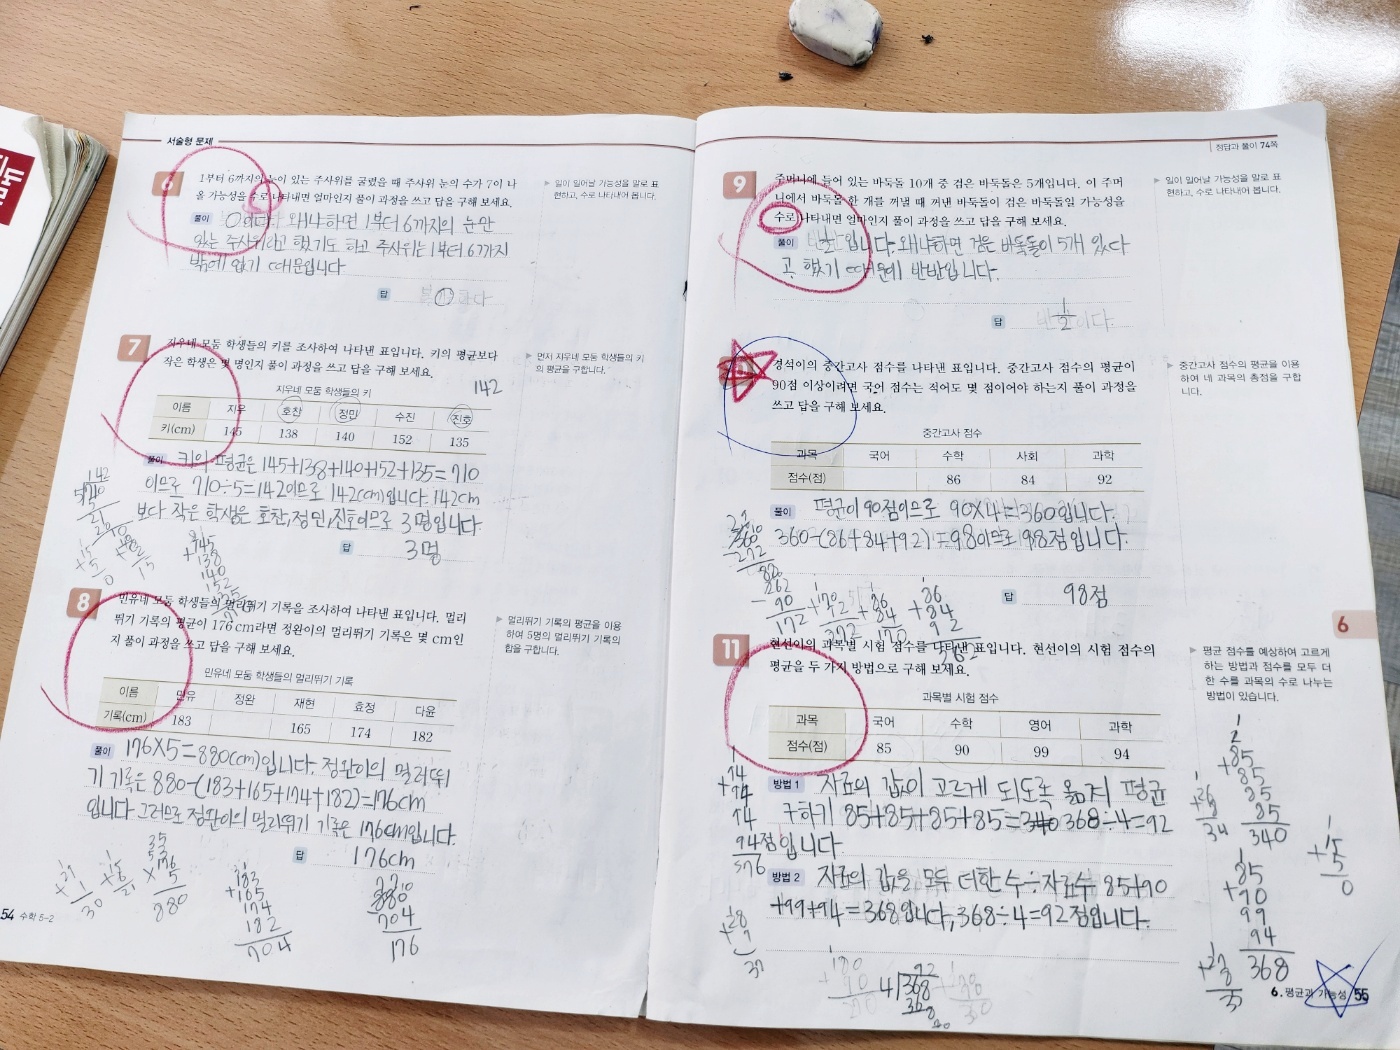 서술형 문제
6
1부터 6까지의 눈이 있는 주사위를 굴렸을 때 주사위 눈의 수가 7이 나
올 가능성을 수로 나타내면 얼마인지 풀이 과정을 쓰고 답을 구해 보세요.
▶ 일이 일어날 가능성을 말로 표
현하고, 수로 나타내어 봅니다.
풀이 0입니다. 왜냐하면 1부터 6까지의 눈만
있는 주사위라고 했기도 하고 주사위는 1부터 6까지
밖에 없기 때문입니다
답
7
지우네 모둠 학생들의 키를 조사하여 나타낸 표입니다. 키의 평균보다
작은 학생은 몇 명인지 풀이 과정을 쓰고 답을 구해 보세요.
▶ 먼저 지우네 모둠 학생들의 키
의 평균을 구합니다.
지우네 모둠 학생들의 키
142
이름 지우 호찬 정민 수진 진호
키(cm) 145 138 140 152 135
풀이 키의 평균은 145+138+140+152+135=710
이므로 710÷5=142이므로 142(cm)입니다. 142cm
보다 작은 학생은 호찬,정민,진호이므로 3명입니다
답 3명
8
민유네 모둠 학생들의 멀리뛰기 기록을 조사하여 나타낸 표입니다. 멀리
뛰기 기록의 평균이 176 cm라면 정완이의 멀리뛰기 기록은 몇 cm인
지 풀이 과정을 쓰고 답을 구해 보세요.
▶ 멀리뛰기 기록의 평균을 이용
하여 5명의 멀리뛰기 기록의
합을 구합니다.
민유네 모둠 학생들의 멀리뛰기 기록
이름 민유 정완 재현 효정 다윤
기록(cm) 183 165 174 182
풀이 176×5=880(cm)입니다. 정완이의 멀리뛰
기 기록은 880-(183+165+174+182)=176cm
입니다 그러므로 정완이의 멀리뛰기 기록은 176cm입니다.
답 176cm
183
+165
174
182
704
880
704
176
54 수학 5-2
정답과 풀이 74쪽
9
주머니에 들어 있는 바둑돌 10개 중 검은 바둑돌은 5개입니다. 이 주머
니에서 바둑돌 한 개를 꺼낼 때 꺼낸 바둑돌이 검은 바둑돌일 가능성을
수로 나타내면 얼마인지 풀이 과정을 쓰고 답을 구해 보세요.
▶ 일이 일어날 가능성을 말로 표
현하고, 수로 나타내어 봅니다.
풀이 1/2입니다. 왜냐하면 검은 바둑돌이 5개 있다
고 했기 때문에 반반입니다.
답 1/2
경석이의 중간고사 점수를 나타낸 표입니다. 중간고사 점수의 평균이
90점 이상이려면 국어 점수는 적어도 몇 점이어야 하는지 풀이 과정을
쓰고 답을 구해 보세요.
▶ 중간고사 점수의 평균을 이용
하여 네 과목의 총점을 구합
니다.
중간고사 점수
과목 국어 수학 사회 과학
점수(점) 86 84 92
풀이 평균이 90점이므로 90×4=360입니다.
360-(86+84+92)=98이므로 98점입니다.
답 98점
6
11
현선이의 과목별 시험 점수를 나타낸 표입니다. 현선이의 시험 점수의
평균을 두 가지 방법으로 구해 보세요.
▶ 평균 점수를 예상하여 고르게
하는 방법과 점수를 모두 더
한 수를 과목의 수로 나누는
방법이 있습니다.
과목별 시험 점수
과목 국어 수학 영어 과학
점수(점) 85 90 99 94
방법 1 자료의 값이 고르게 되도록 옮겨 평균
구하기 85+85+85+85=340 368÷4=92
점입니다
방법 2 자료의 값을 모두 더한 수÷자료수 85+90
+99+94=368입니다, 368÷4=92점입니다.
+85
85
85
85
340
85
+90
99
94
368
6. 평균과 가능성 55